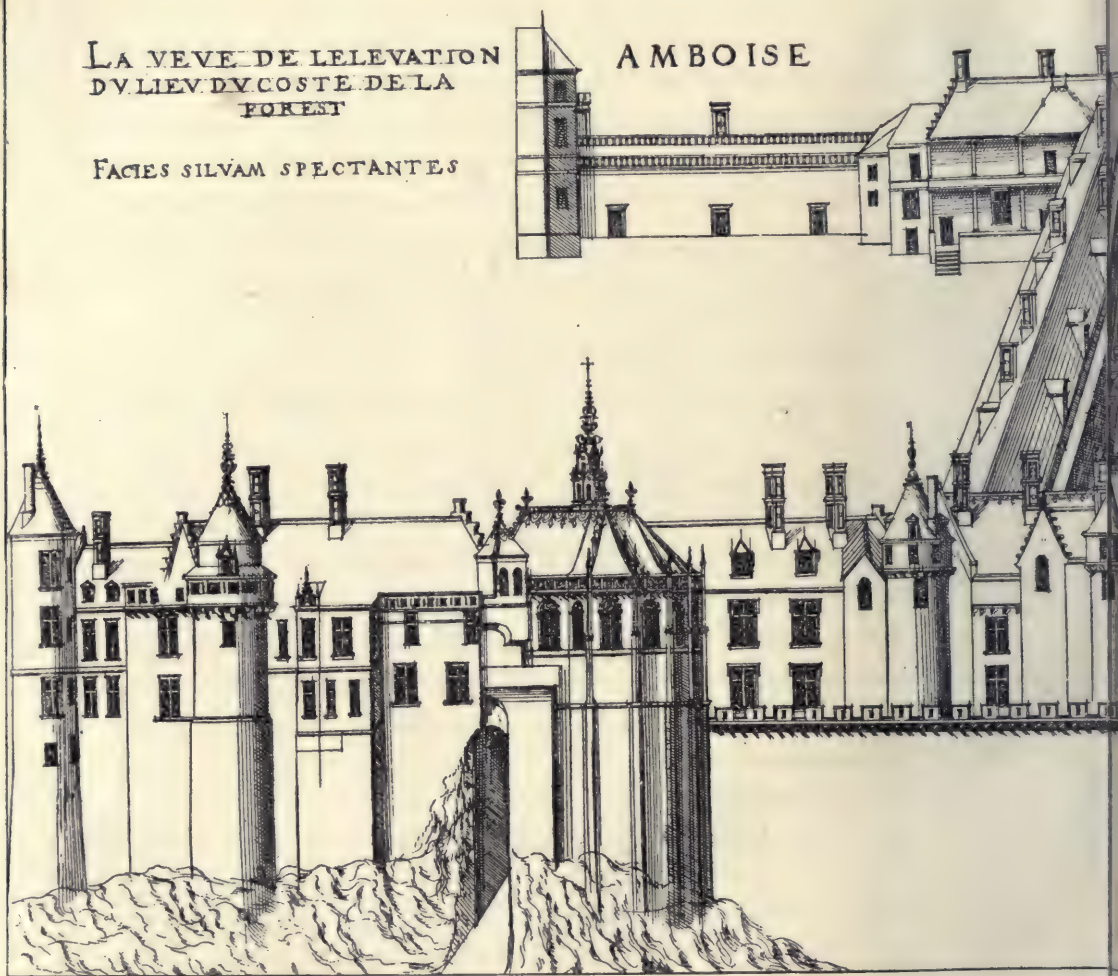 LA VEVE DE LELEVATION
DV LIEV DV COSTE DE LA
FOREST
FACIES SILVAM SPECTANTES
AMBOISE